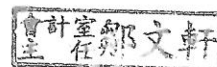 會計室
主任
鄒文軒